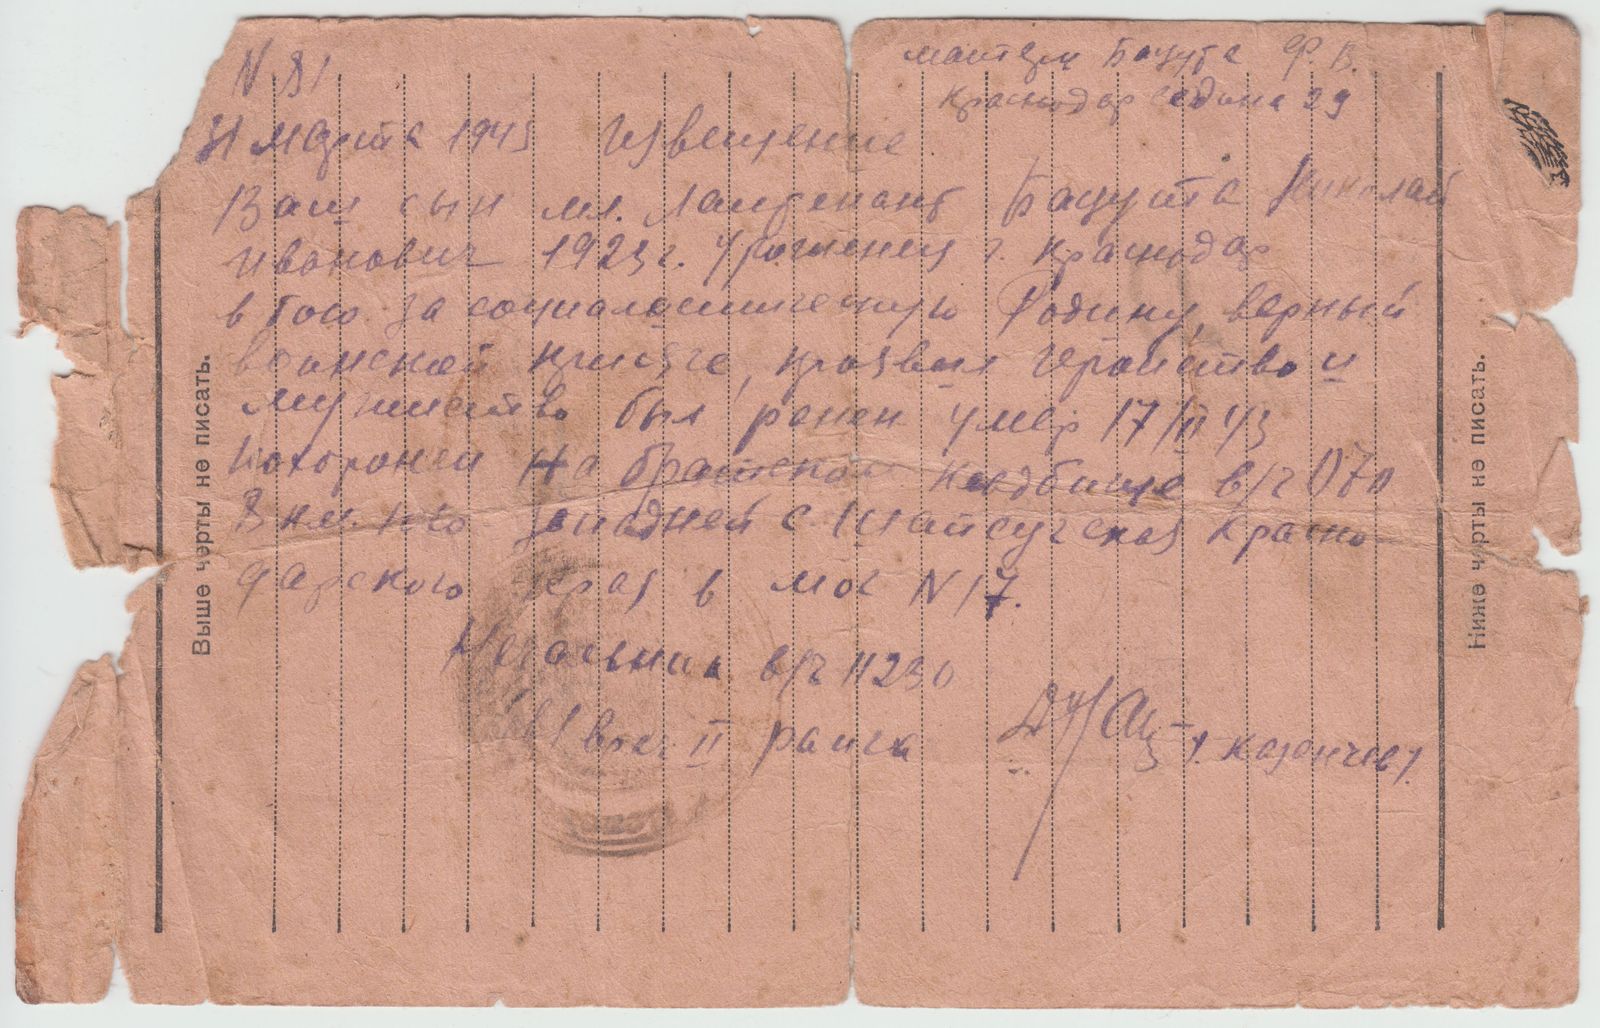 N 81
матери Бацута Ф. В.
Краснодар Седина 29
31 марта 1943 Извещение
Ваш сын мл. Лаитенант Бацута Николай
Иванович 1923 г. Уроженец г. Краснодар
в бою за социалистическую Родину, верный
воинской присяге, проявил геройство и
мужество был ранен умер 17/II 43
похоронен на братском кладбище в/г 070
3 км. юго западней с Крано
дарского края в мог N 17.
Начальник в/г 11230
В/врач II ранга /Казанчев/
Выше черты не писать.
Ниже черты не писать.